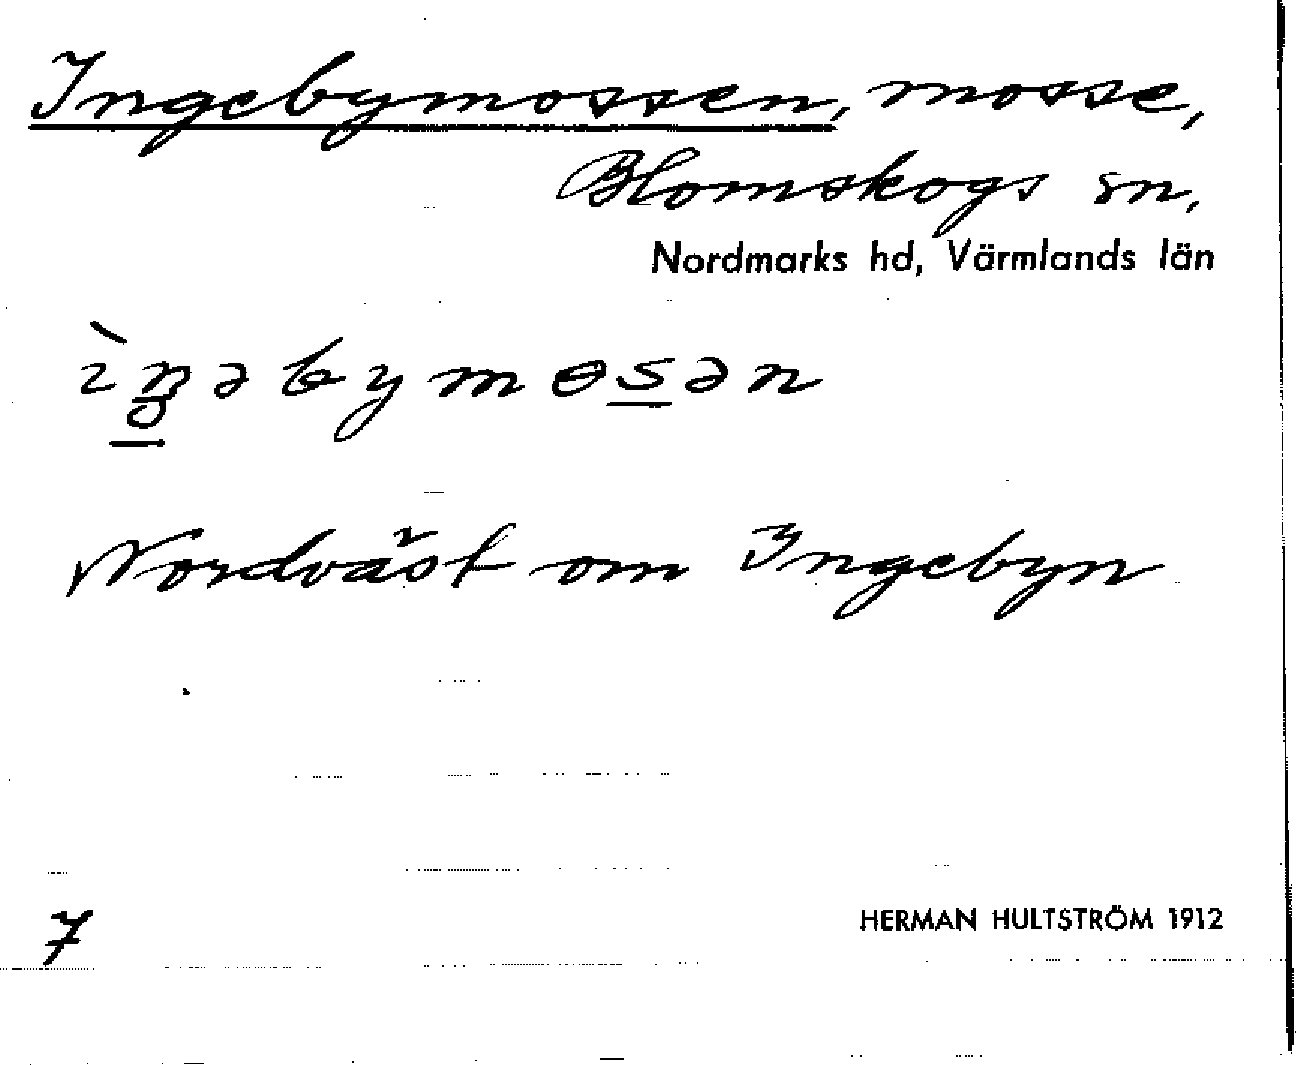 Ingebymossen, mosse,
Blomskogs sn,
Nordmarks hd, Värmlands län
ìŋəbymɵsən
Nordväst om Ingebyn
7
HERMAN HULTSTRÖM 1912